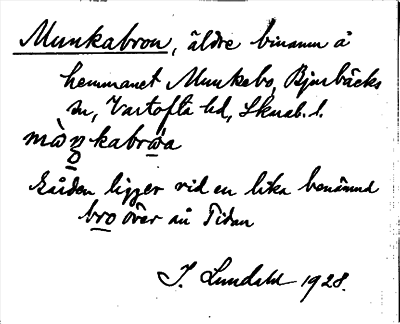 Munkabron, äldre binamn å
hemmanet Munkebo, Bjurbäcks
sn, Vartofta hd, Skarab. l.
Gården ligger vid en lika benämnd
bro över ån Tidan
J. Lundahl 1928.